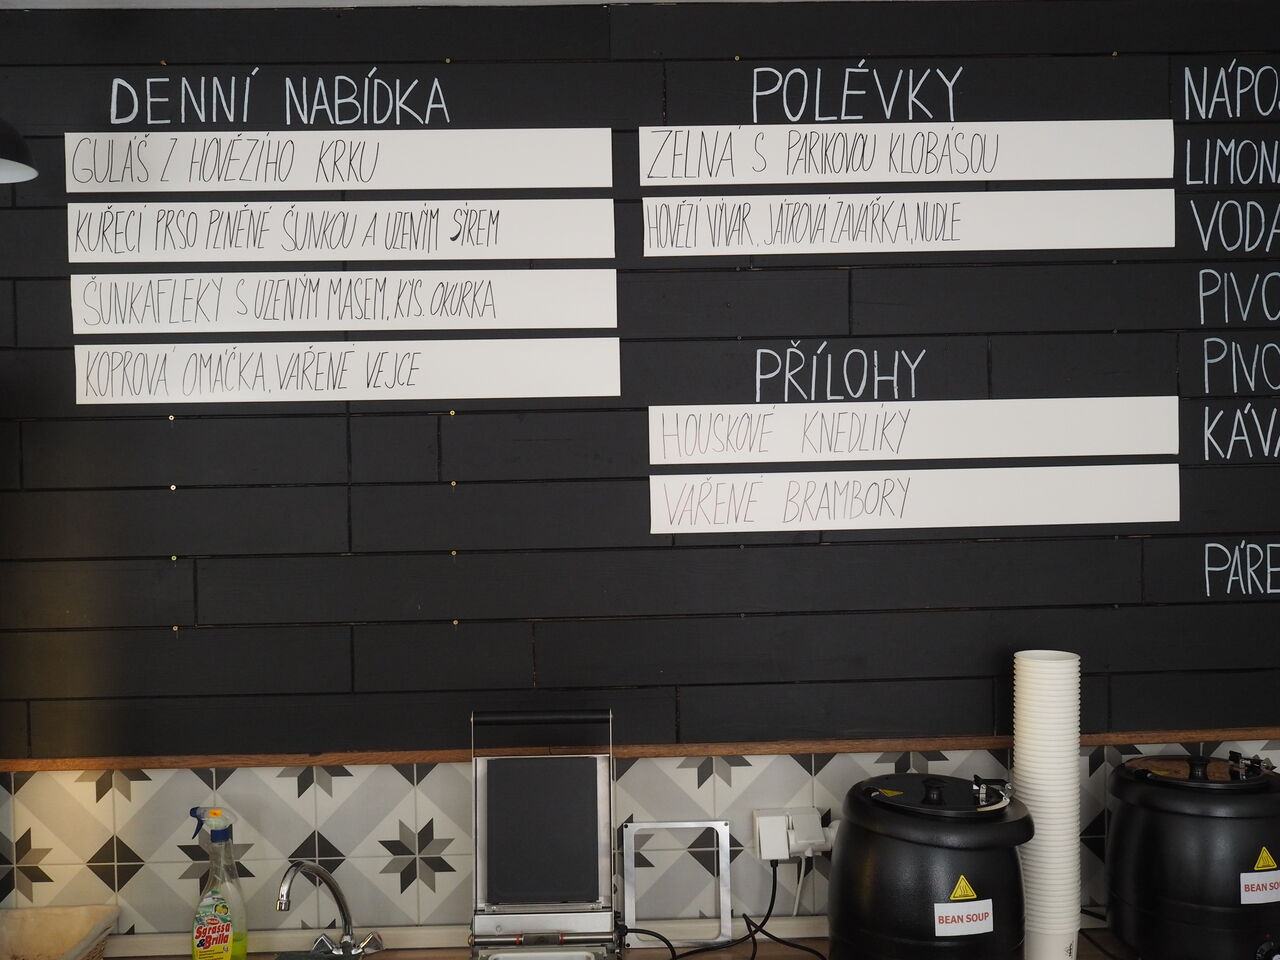 DENNÍ NABÍDKA
GULÁŠ Z HOVĚZÍHO KRKU
KUŘECÍ PRSO PLNĚNÉ ŠUNKOU A UZENÝM SÝREM
ŠUNKAFLEKY S UZENÝM MASEM, KYS. OKURKA
KOPROVÁ OMÁČKA, VAŘENÉ VEJCE
POLÉVKY
ZELNÁ S PARIKOVOU KLOBÁSOU
HOVĚZÍ VÝVAR, JÁTROVÁ ZAVÁŘKA, NUDLE
PŘÍLOHY
HOUSKOVÉ KNEDLÍKY
VAŘENÉ BRAMBORY
NÁPO
LIMONA
VODA
PIVO
PIVO
KÁVA
PÁRE
Sgrassa
& Brilla
BEAN SOUP
BEAN SO